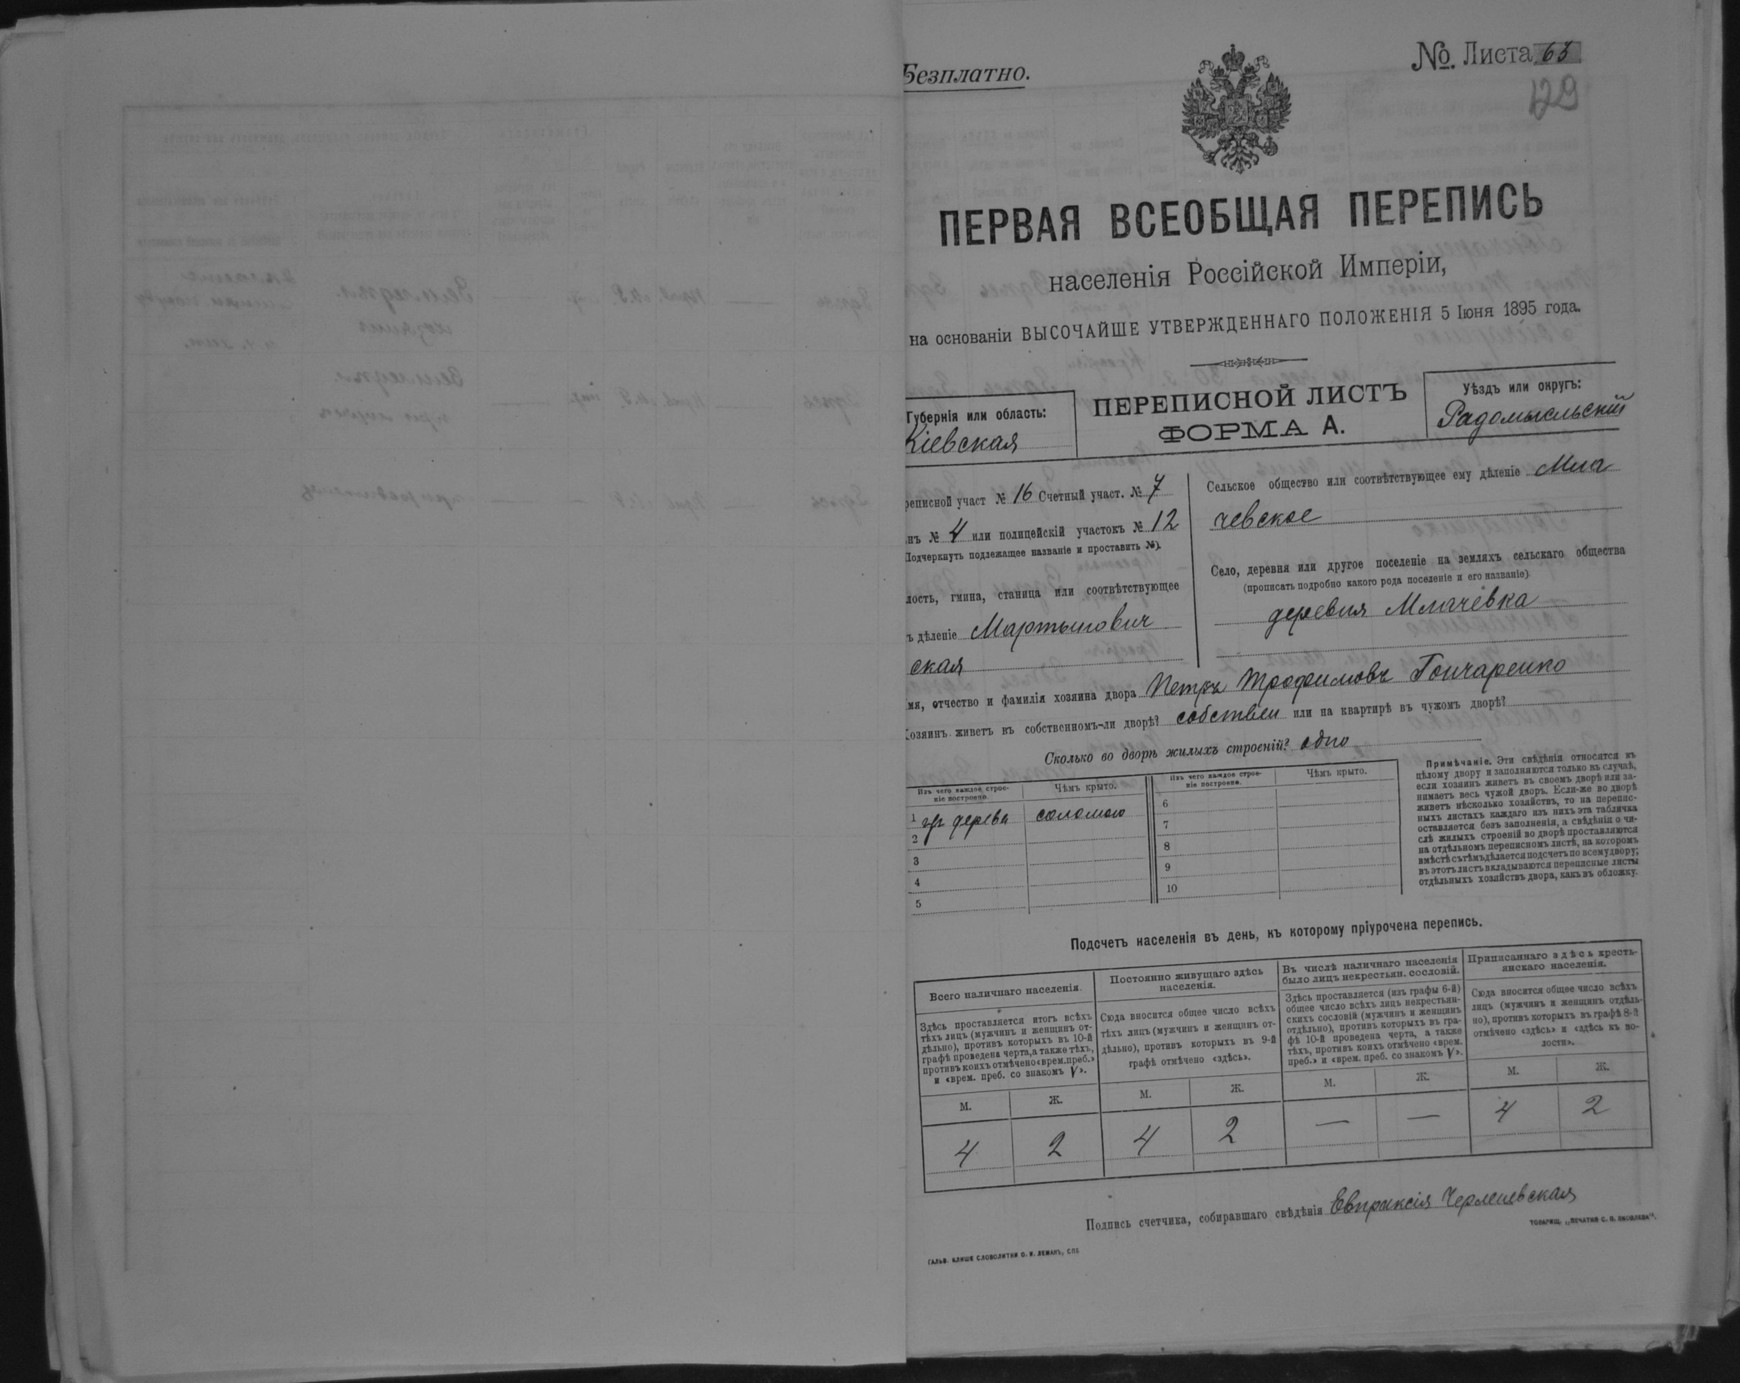 Безплатно.
№. Листа 63
129
ПЕРВАЯ ВСЕОБЩАЯ ПЕРЕПИСЬ
населенія Россійской Имперіи,
на основаніи ВЫСОЧАЙШЕ УТВЕРЖДЕННАГО ПОЛОЖЕНІЯ 5 Іюня 1895 года.
Губернія или область:
Кіевская
ПЕРЕПИСНОЙ ЛИСТЪ
ФОРМА А.
Уѣздъ или округъ:
Радомысльскій
реписной участ № 16 Счетный участ. № 7
нъ № 4 или полицейскій участокъ № 12
Подчеркнуть подлежащее названіе и проставить №).
лость, гмина, станица или соотвѣтствующее
ъ дѣленіе Мартынович
ская
Сельское общество или соотвѣтствующее ему дѣленіе Мла
чевское
Село, деревня или другое поселеніе на земляхъ сельскаго общества
(прописать подробно какого рода поселеніе и его названіе)
деревня Млачевка
мя, отчество и фамилія хозяина двора Петръ Трофимовъ Гончаренко
Хозяинъ живетъ въ собственномъ-ли дворѣ? собствен или на квартирѣ въ чужомъ дворѣ?
Сколько во дворѣ жилыхъ строеній? одно
Изъ чего каждое строе-
ніе построено.
Чѣмъ крыто.
1 изъ дерева соломою
2
3
4
5
Изъ чего каждое строе-
ніе построено.
Чѣмъ крыто.
6
7
8
9
10
Примѣчаніе. Эти свѣдѣнія относятся къ
цѣлому двору и заполняются только въ случаѣ,
если хозяинъ живетъ въ своемъ дворѣ или за-
нимаетъ весь чужой дворъ. Если-же во дворѣ
живетъ нѣсколько хозяйствъ, то на перепис-
ныхъ листахъ каждаго изъ нихъ эта табличка
оставляется безъ заполненія, а свѣдѣнія о чи-
слѣ жилыхъ строеній во дворѣ проставляются
на отдѣльномъ переписномъ листѣ, на которомъ
вмѣстѣ съ тѣмъ дѣлается подсчетъ по всему двору;
въ этотъ листъ вкладываются переписные листы
отдѣльныхъ хозяйствъ двора, какъ въ обложку.
Подсчетъ населенія въ день, къ которому пріурочена перепись.
Всего наличнаго населенія.
Здѣсь проставляется итогъ всѣхъ
тѣхъ лицъ (мужчинъ и женщинъ от-
дѣльно), противъ которыхъ въ 10-й
графѣ проведена черта, а также тѣхъ,
противъ коихъ отмѣчено «врем. преб.»
и «врем. преб. со знакомъ V».
М. Ж.
4 2
Постоянно живущаго здѣсь
населенія.
Сюда вносится общее число всѣхъ
тѣхъ лицъ (мужчинъ и женщинъ от-
дѣльно), противъ которыхъ въ 9-й
графѣ отмѣчено «здѣсь».
М. Ж.
4 2
Въ числѣ наличнаго населенія
было лицъ некрестьян. сословій.
Здѣсь проставляется (изъ графы 6-й)
общее число всѣхъ лицъ некрестьян-
скихъ сословій (мужчинъ и женщинъ
отдѣльно), противъ которыхъ въ гра-
фѣ 10-й проведена черта, а также
тѣхъ, противъ коихъ отмѣчено «врем.
преб.» и «врем. преб. со знакомъ V».
М. Ж.
— —
Приписаннаго здѣсь кресть-
янскаго населенія.
Сюда вносится общее число всѣхъ
лицъ (мужчинъ и женщинъ отдѣль-
но), противъ которыхъ въ графѣ 8-й
отмѣчено «здѣсь» и «здѣсь въ во-
лости».
М. Ж.
4 2
Подпись счетчика, собиравшаго свѣдѣнія Евпраксія
ГАЛЬВ. КЛИШЕ СЛОВОЛИТНИ О. И. ЛЕМАНЪ, СПБ
ТОВАРИЩ. „ПЕЧАТНЯ С. П. ЯКОВЛЕВА".